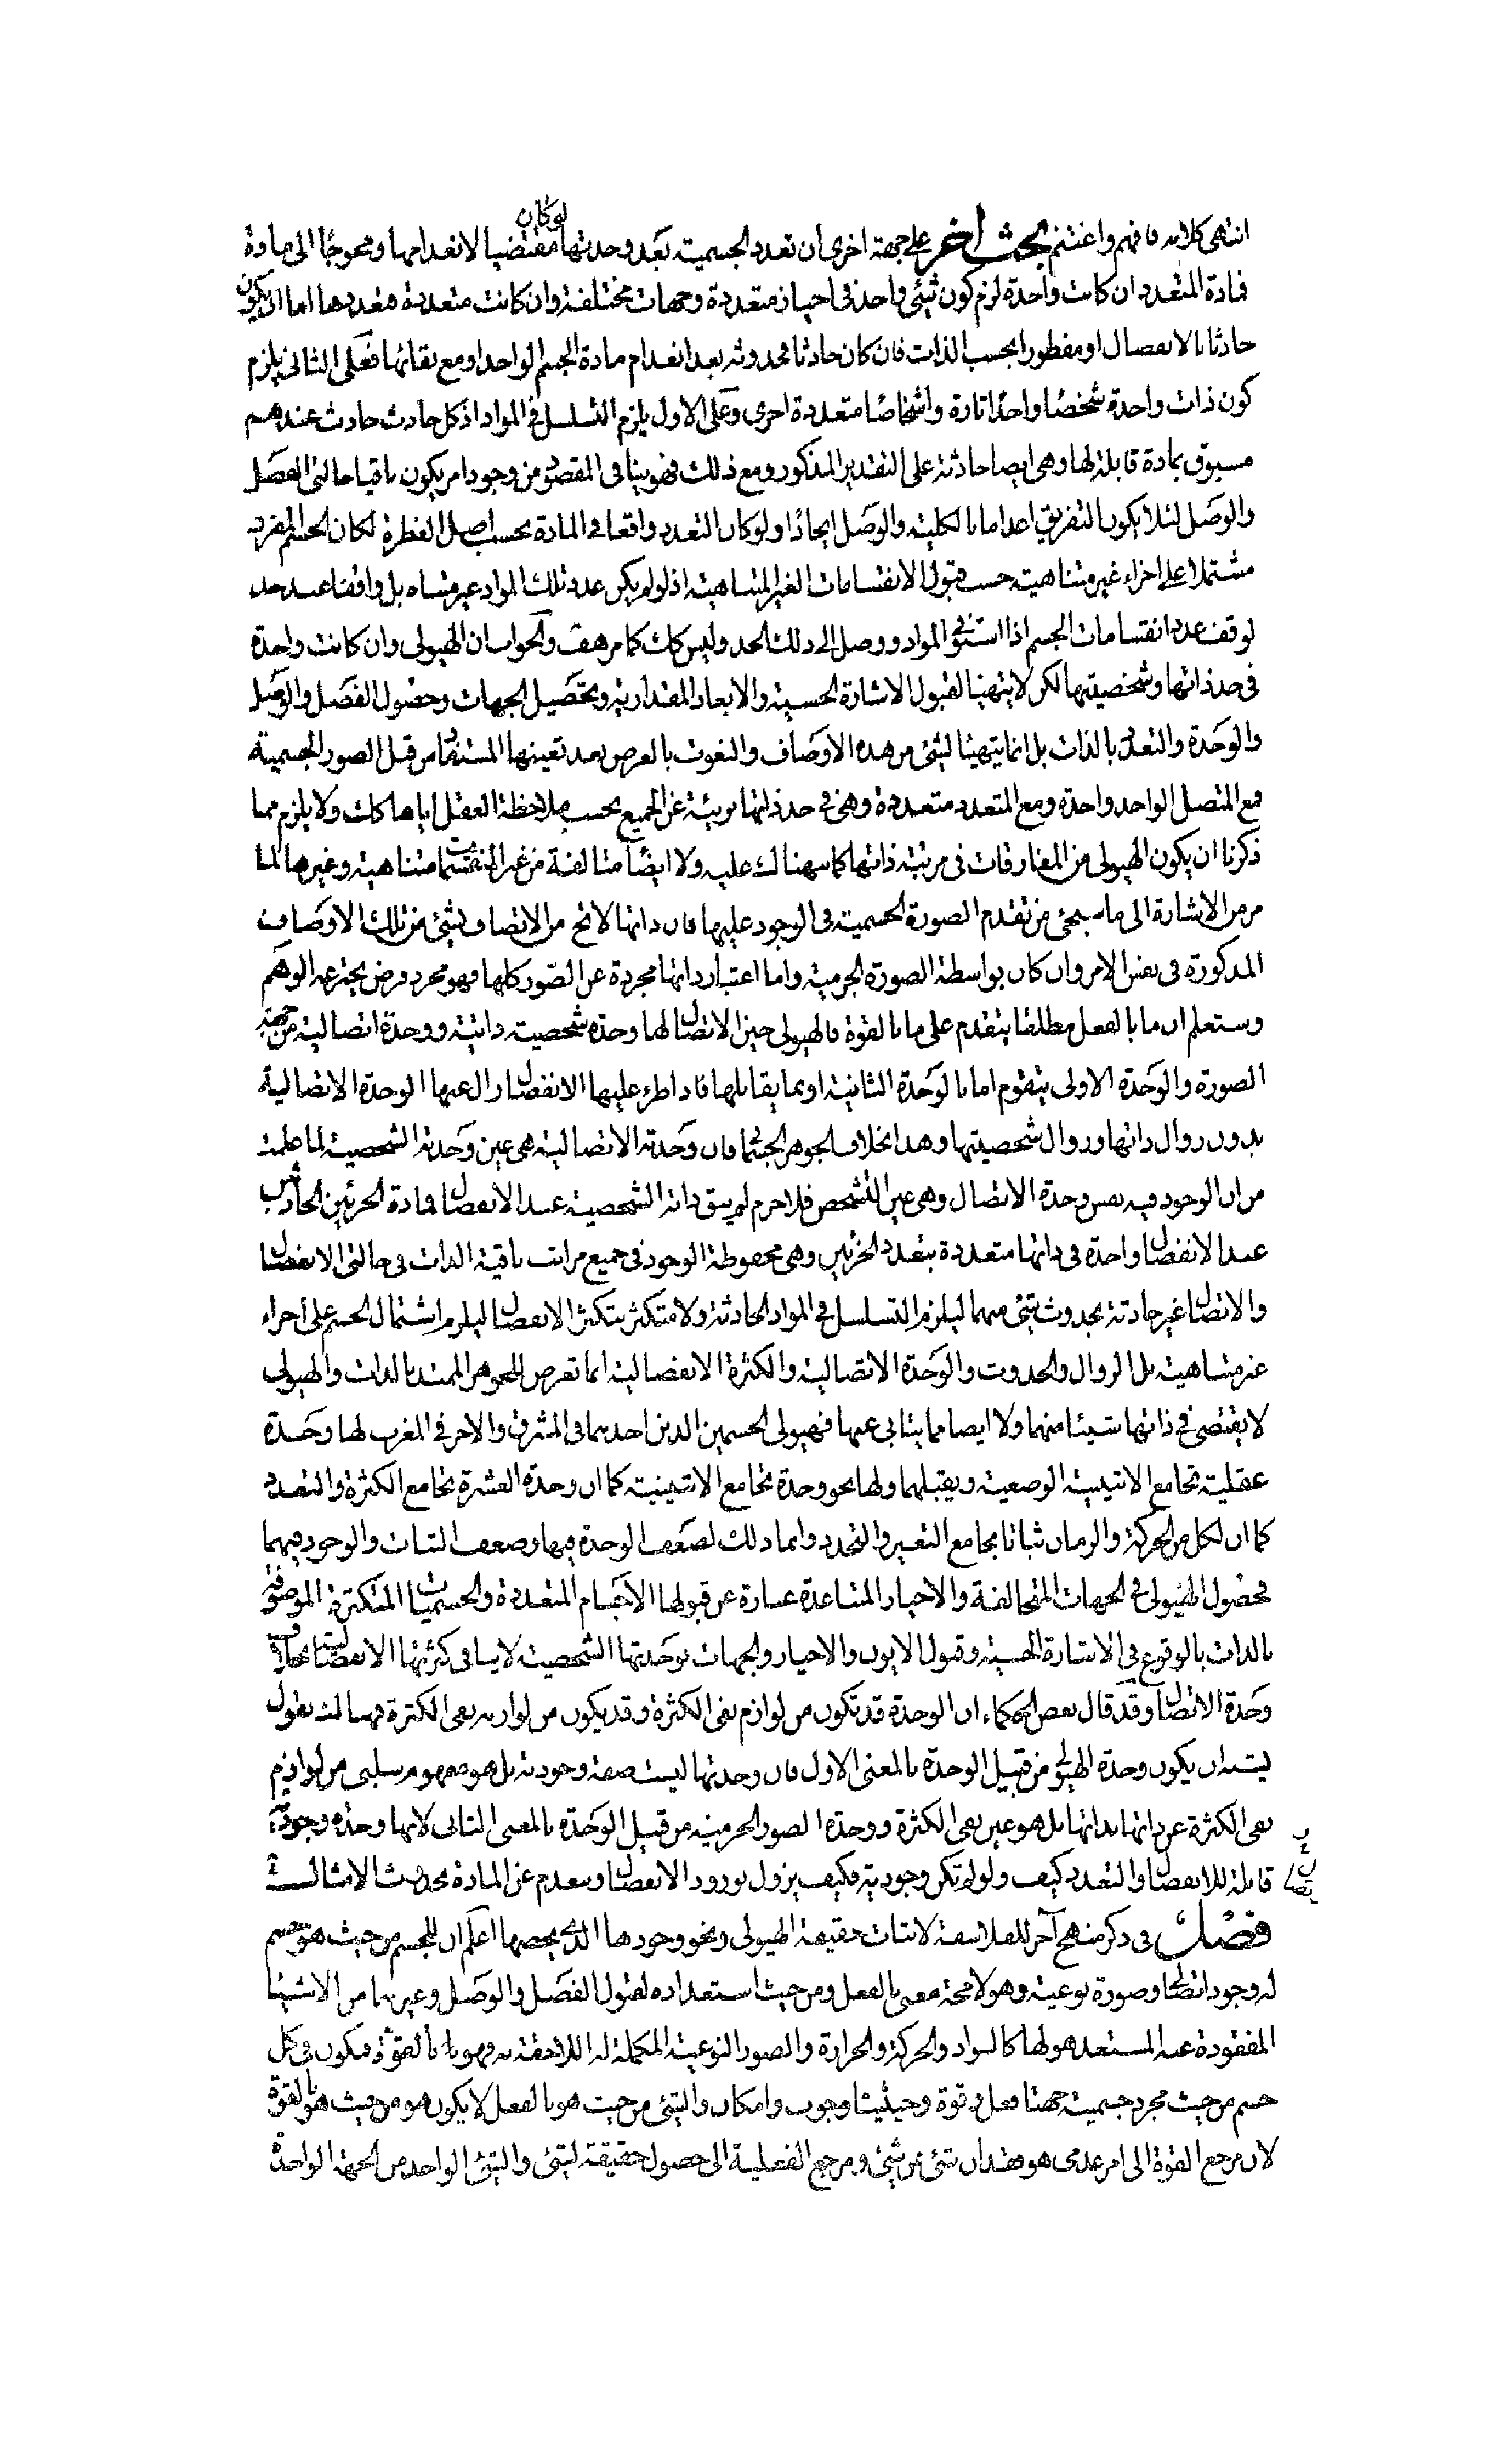 انتهى كلامه فافهم واغتنم بحث اخر على جهة اخرى ان تعدد الجسمية بعد وحدتها لو كان مقتضيا لانعدامها ومحوجا الى مادة
فمادة المتعدد ان كانت واحدة لزم كون شئ واحد فى احياز متعددة وجهات مختلفة وان كانت متعددة فتعددها اما ان يكون
حادثا بالانفصال او مفطورا بحسب الذات فان كان حادثا فحدوثه بعد انعدام مادة الجسم الواحد او مع بقائها فعلى الثانى يلزم
كون ذات واحدة شخصا واحدا تارة واشخاصا متعددة اخرى وعلى الاول يلزم التسلسل فى المواد اذ كل حادث حادث عندهم
مسبوق بمادة قابلة لها وهى ايضا حادثة على التقدير المذكور ومع ذلك فهو ينافى المقصود من وجود امر يكون باقيا حالتى الفصل
والوصل لئلا يكون التفريق اعداما بالكلية والوصل ايجادا ولو كان التعدد واقعا فى المادة بحسب اصل الفطرة لكان الجسم المفرد
مشتملا على اجزاء غير متناهية حسب قبول الانقسامات الغير المتناهية اذ لو لم يكن عدد تلك المواد غير متناه بل واقفا عند حد
لوقف عدد انقسامات الجسم اذا استوفى المواد ووصل الى ذلك الحد وليس كك كما مر هف والجواب ان الهيولى وان كانت واحدة
فى حد ذاتها وشخصيتها لكن لا يتهيا لقبول الاشارة الحسية والابعاد المقدارية وتحصيل الجهات وحصول الفصل والوصل
والوحدة والتعدد بالذات بل انما يتهيئا لشئ من هذه الاوصاف والنعوت بالعرض بعد تعينها المستفاد من قبل الصور الجسمية
فمع المتصل الواحد واحدة ومع المتعدد متعددة وهى فى حد ذاتها بريئة عن الجميع بحسب ملاحظة العقل اياها كذلك ولا يلزم مما
ذكرنا ان يكون الهيولى من المفارقات فى مرتبة ذاتها كما سهناك عليه ولا ايضا متالفة من غير المنقسمات متناهية وغيرها لما
مر من الاشارة الى ما سيجئ من تقدم الصورة الجسمية فى الوجود عليها فان ذاتها لا تخ من الاتصاف بشئ من تلك الاوصاف
المذكورة فى نفس الامر وان كان بواسطة الصورة الجرمية واما اعتبار ذاتها مجردة عن الصور كلها فهو مجرد فرض يخترعه الوهم
وستعلم ان ما بالفعل مطلقا يتقدم على ما بالقوة فالهيولى حين الاتصال لها وحدة شخصية ذاتية ووحدة اتصالية من جهة
الصورة والوحدة الاولى يتقوم اما بالوحدة الثانية او بما يقابلها فاذا طرء عليها الانفصال زال عنها الوحدة الاتصالية
بدون زوال ذاتها وزوال شخصيتها وهذا بخلاف الجوهر الجسمانى فان وحدته الاتصالية هى عين وحدته الشخصية لما علمت
من ان الوجود فيه نفس وحدة الاتصال وهى عين التشخص فلا جرم لم يبق ذاته الشخصية عند الانفصال فمادة الجزئين الحادثين
عند الانفصال واحدة فى ذاتها متعددة بتعدد الجزئين وهى محفوظة الوجود فى جميع مراتب باقية الذات فى حالتى الانفصال
والاتصال غير حادثة بحدوث شئ منهما ليلزم التسلسل فى المواد الحادثة ولا متكثرة بتكثر الانفصال ليلزم اشتمال الجسم على اجزاء
غير متناهية بل الزوال والحدوث والوحدة الاتصالية والكثرة الانفصالية انما تعرض للجوهر الممتد بالذات والهيولى
لا يقتضى فى ذاتها شيئا منهما ولا ايضا مما يتابى عنها فهيولى الجسمين الذين احدهما فى المشرق والاخر فى المغرب لها وحدة
عقلية تجامع الاثنينية الوضعية ويقبلهما ولها نحو وحدة تجامع الاثنينية كما ان وحدة العشرة تجامع الكثرة والتعدد
كما ان لكل من الحركة والزمان ثباتا يجامع التغير والتجدد وانما ذلك لضعف الوحدة فيها وضعف الثبات والوجود فيهما
فحصول الهيولى فى الجهات المتخالفة والاحياز المتباعدة عبارة عن قبولها الاجسام المتعددة والجسميات المتكثرة الموصوفة
بالذات بالوقوع فى الاشارة الحسية وقبول الايون والاحياز والجهات فوحدتها الشخصية لا ينافى كثرتها الانفصالية بخلاف
وحدة الاتصال وقد قال بعض الحكماء ان الوحدة قد تكون من لوازم نفى الكثرة وقد يكون من لوازمه نفى الكثرة فهنا لك نقول
يشبه ان يكون وحدة الهيولى من قبيل الوحدة بالمعنى الاول فان وحدتها ليست صفة وجودية بل هو مفهوم سلبى من لوازم
نفى الكثرة عن ذاتها بذاتها بل هو عين نفى الكثرة ووحدة الصور الجرمية من قبيل الوحدة بالمعنى الثانى لانها وحدة وجودية
قابلة للانفصال والتعدد كيف ولو لم تكن وجودية فكيف يزول بورود الانفصال وينعدم عن المادة بحدوث الامثال
فصل فى ذكر منهج آخر للفلاسفة لاثبات حقيقة الهيولى ونحو وجودها الذى يخصها اعلم ان للجسم من حيث هو جسم
له وجود اتصالى وصورة نوعية وهو لا محة معنى بالفعل ومن حيث استعداده لقبول الفصل والوصل وغيرهما من الاشياء
المفقودة عنه المستعد هو لها كالسواد والحركة والحرارة والصور النوعية المكملة له اللاحقة به فهو بالقوة فيكون فى كل
جسم من حيث مجرد جسمية جهتا فعل وقوة وحيثيتا وجوب وامكان والشئ من حيث هو بالفعل لا يكون هو من حيث هو بالقوة
لان مرجع القوة الى امر عدمى هو فقدان شئ عن شئ ومرجع الفعلية الى حصول حقيقة لشئ والشئ الواحد من الجهة الواحدة